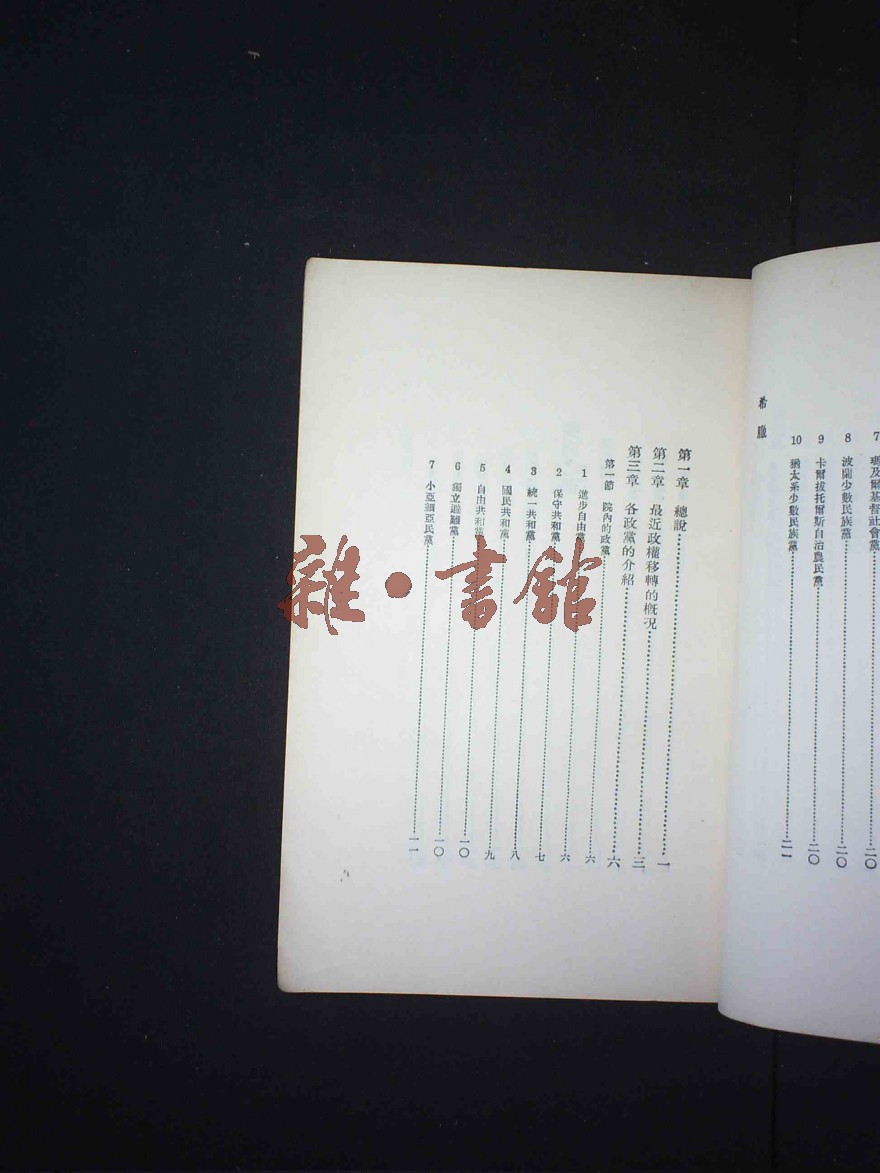 7 瑪及爾基督社會黨……二〇
8 波蘭少數民族黨……二〇
9 卡爾拔托爾斯自治農民黨……二〇
10 猶太系少數民族黨……二一
希臘
第一章 總說……一
第二章 最近政權移轉的槪況……三
第三章 各政黨的介紹……六
第一節 院內的政黨……六
1 進步自由黨……六
2 保守共和黨……七
3 統一共和黨……八
4 國民共和黨……九
5 自由共和黨……一〇
6 獨立避難黨……一〇
7 小亞細亞民黨……一一
雜·書館